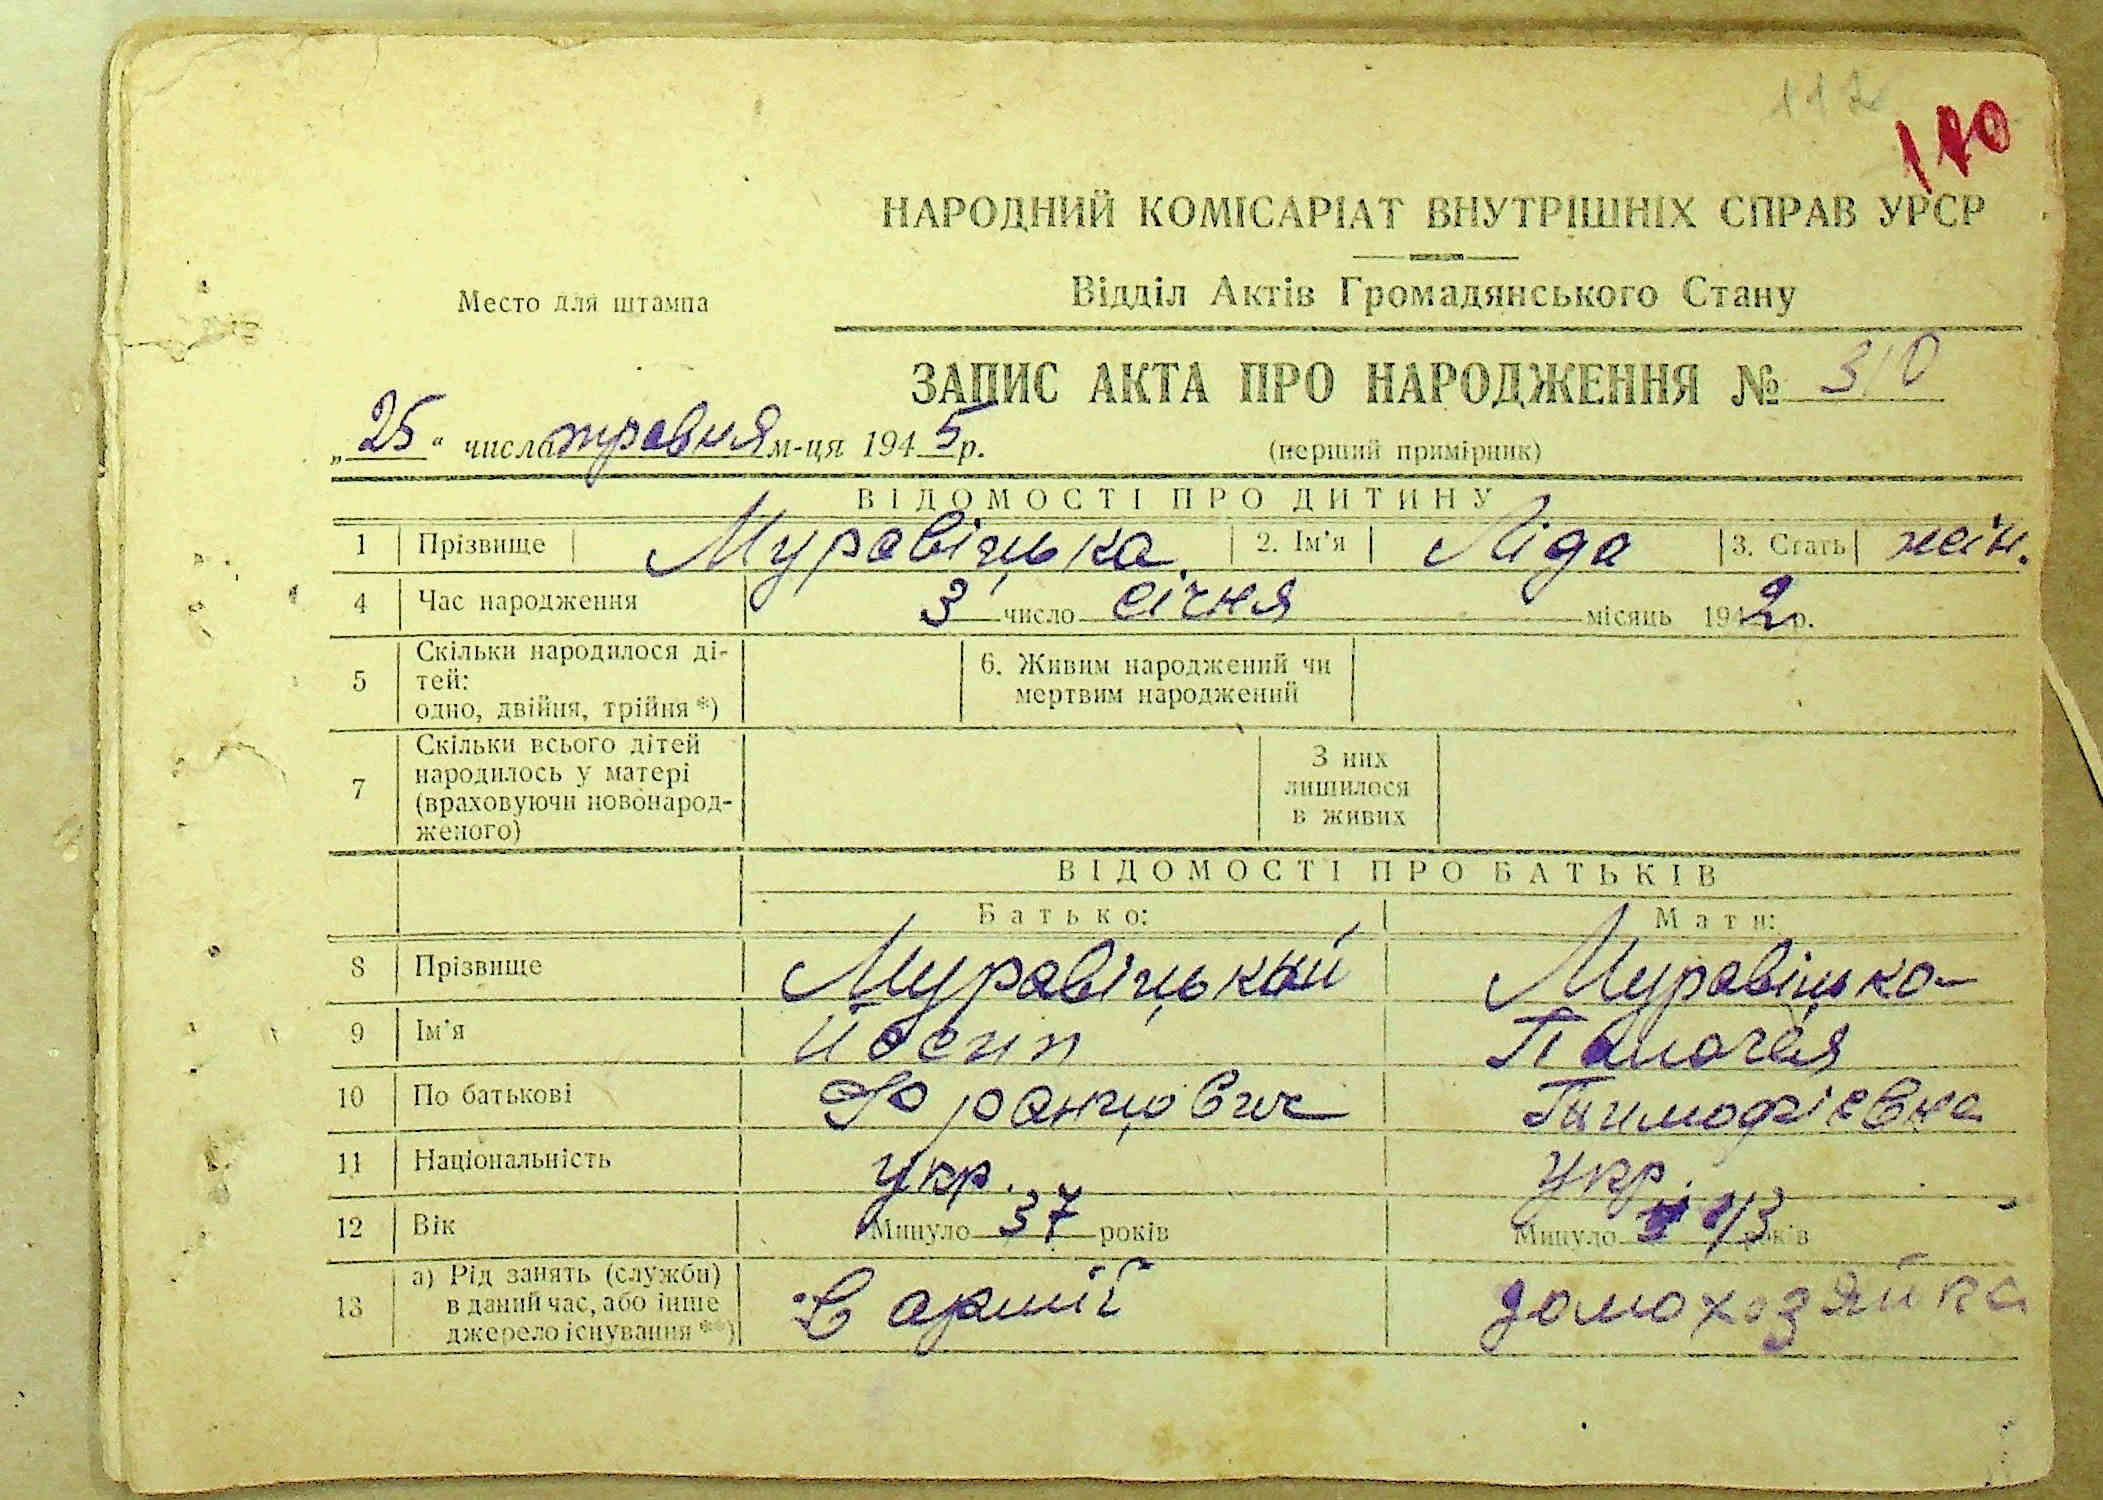 112
170
НАРОДНИЙ КОМІСАРІАТ ВНУТРІШНІХ СПРАВ УРСР
Место для штампа
Відділ Актів Громадянського Стану
ЗАПИС АКТА ПРО НАРОДЖЕННЯ № 310
„25“ числа травня м-ця 1945 р.
(перший примірник)
ВІДОМОСТІ ПРО ДИТИНУ
1 Прізвище Муравіцька. 2. Ім'я Ліда 3. Стать жін.
4 Час народження 3 число січня місяць 1942 р.
5 Скільки народилося ді-
тей:
одно, двійня, трійня *)
6. Живим народжений чи
мертвим народжений
7 Скільки всього дітей
народилось у матері
(враховуючи новонарод-
женого)
З них
лишилося
в живих
ВІДОМОСТІ ПРО БАТЬКІВ
Батько: Мати:
8 Прізвище Муравіцький Муравіцька
9 Ім'я Йосип
10 По батькові Францович Тимофієвна
11 Національність укр. укр.
12 Вік Минуло 37 років Минуло років
13 а) Рід занять (служби)
в даний час, або інше
джерело існування **)
В армії домохозяйка